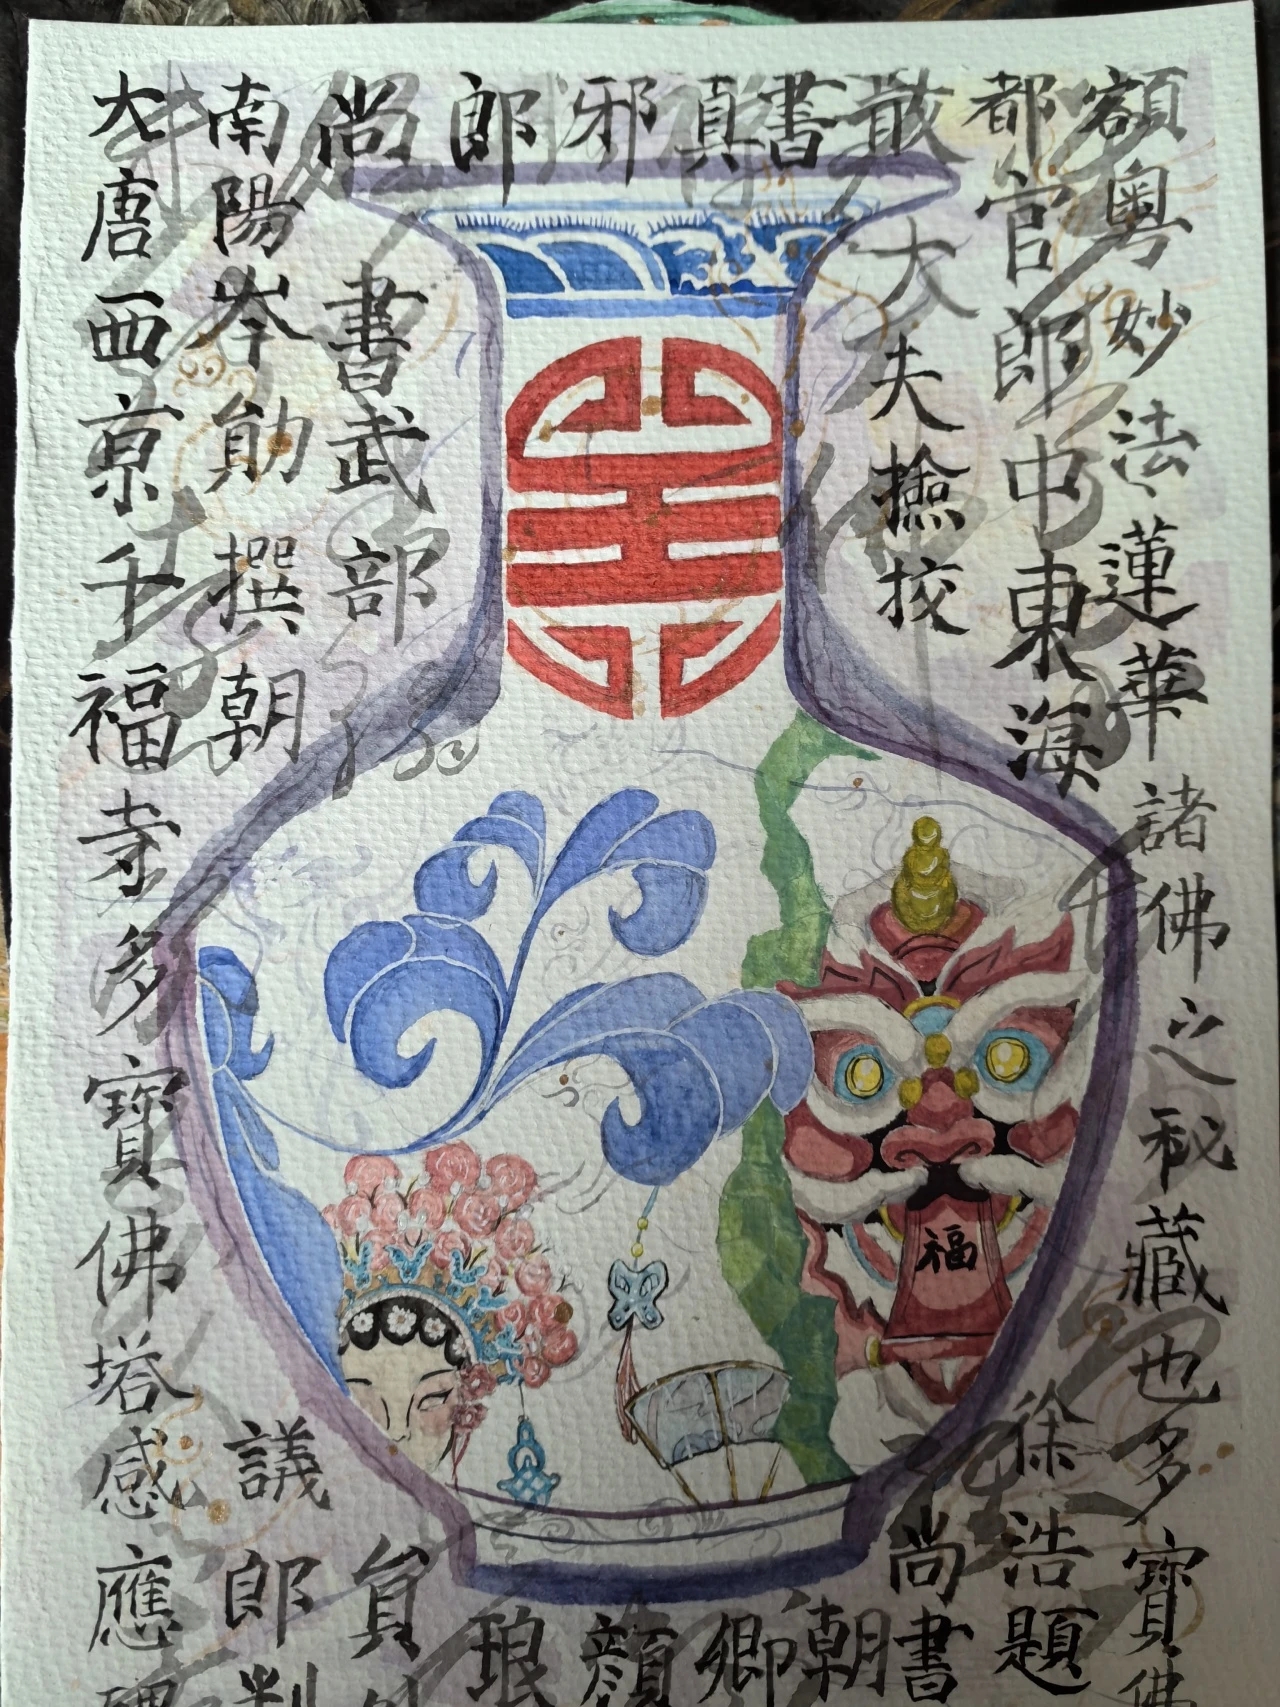 大唐西京千福寺多寶佛塔感應碑
南陽岑勛撰朝議郎判
尚書武部員外
郎琅
邪顏
真卿
書朝
散大夫撿校尚書
都官郎中東海徐浩題
額粵妙法蓮華諸佛之秘藏也多寶佛
福